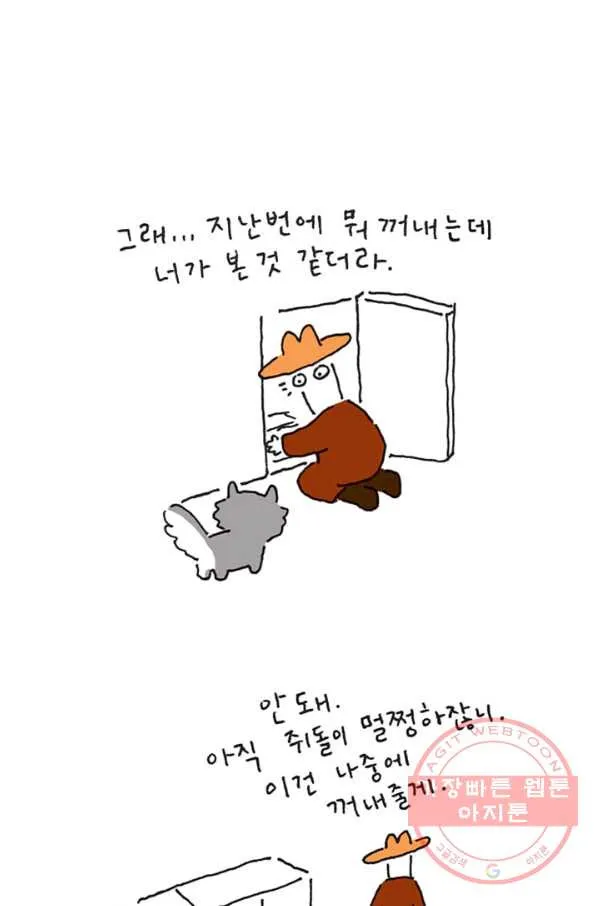 그래... 지난번에 뭐 꺼내는데
너가 본 것 같더라.
안 돼.
아직 쥐돌이 멀쩡하잖니.
이건 나중에
꺼내줄게.
AGIT WEBTOON
가장빠른 웹툰
아지툰
구글검색
G
아지툰